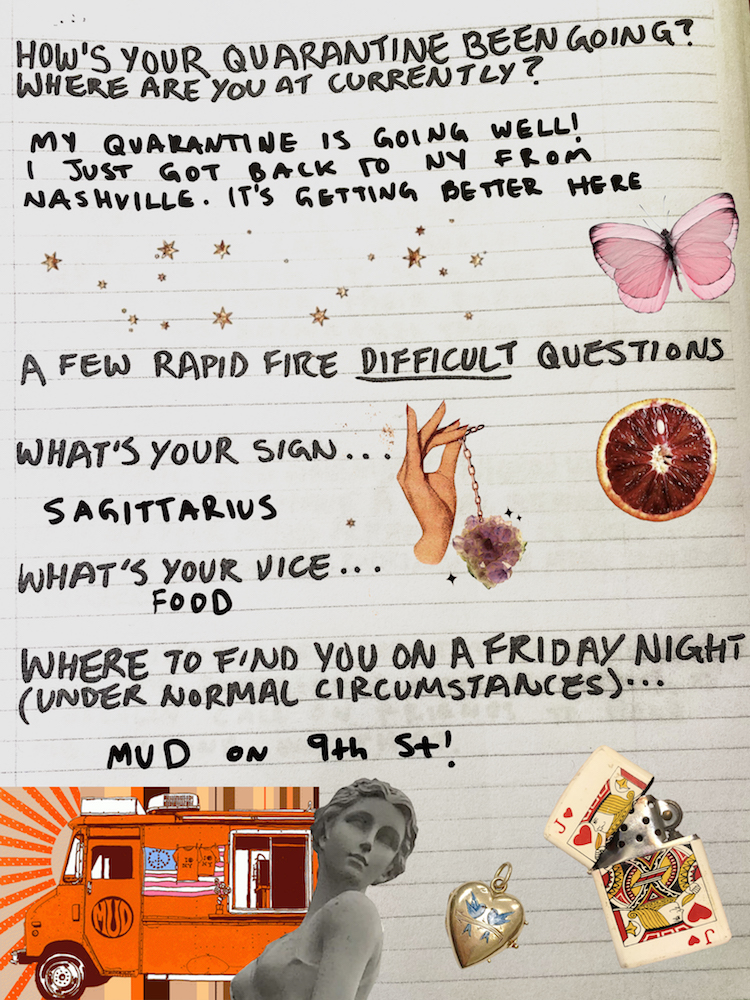 HOW'S YOUR QUARANTINE BEEN GOING?
WHERE ARE YOU AT CURRENTLY?
MY QUARANTINE IS GOING WELL!
I JUST GOT BACK TO NY FROM
NASHVILLE. IT'S GETTING BETTER HERE
A FEW RAPID FIRE DIFFICULT QUESTIONS
WHAT'S YOUR SIGN...
SAGITTARIUS
WHAT'S YOUR VICE...
FOOD
WHERE TO FIND YOU ON A FRIDAY NIGHT
(UNDER NORMAL CIRCUMSTANCES)...
MUD ON 9th St!
MUD
J
A A
J